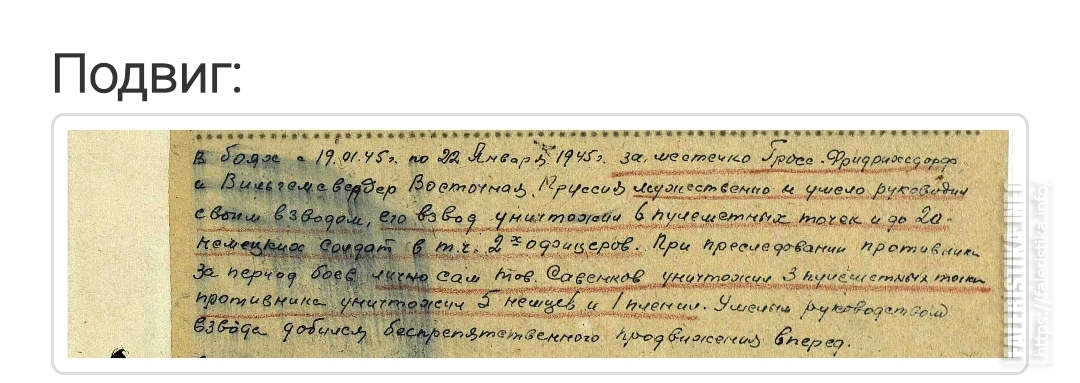 Подвиг:
В боях с 19.01.45г. по 22 Января 1945г. за местечко Гросс-Фридрихсдорф
и Вильгемсвербер Восточная Пруссия мужественно и умело руководил
своим взводом, его взвод уничтожил 6 пулеметных точек и до 20-
немецких солдат в т.ч. 2х офицеров. При преследовании противника
за период боев лично сам тов. Савенков уничтожил 3 пулеметных точки
противника уничтожил 5 немцев и 1 пленил. Умелым руководством
взвода добился беспрепятственного продвижения вперед.
FALERISTIKA.INFO
https://faleristika.info